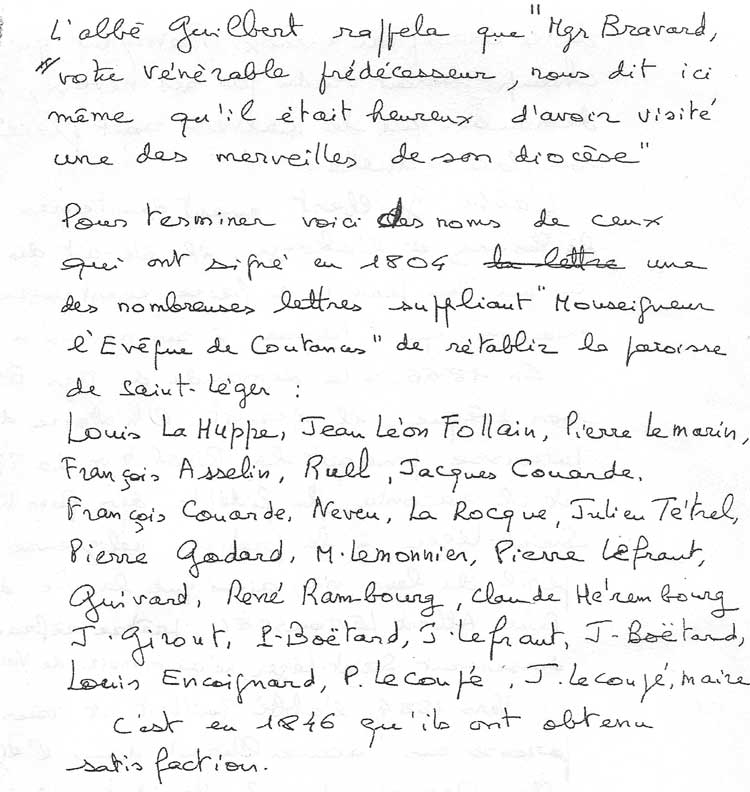 L'abbé Guilbert rappela que "Mgr Bravard,
"votre vénèrable prédécesseur, nous dit ici
même qu'il était heureux d'avoir visité
une des merveilles de son diocèse"
Pour terminer voici des noms de ceux
qui ont signé en 1804 la lettre une
des nombreuses lettres suppliant "Monseigneur
l'Evêque de Coutances" de rétablir la paroisse
de Saint-Léger :
Louis La Huppe, Jean Léon Follain, Pierre Lemarin,
François Asselin, Ruel, Jacques Couarde,
François Couarde, Neveu, La Rocque, Julien Tétrel,
Pierre Godard, M. Lemonnier, Pierre Lefraut,
Quivard, René Rambourg, Claude Hérembourg
J. Girout, P-Boëtard, J. Lefraut, J-Boëtard,
Louis Encoignard, P. Lecoupé, J. Lecoupé, maire
C'est en 1846 qu'ils ont obtenu
satisfaction.